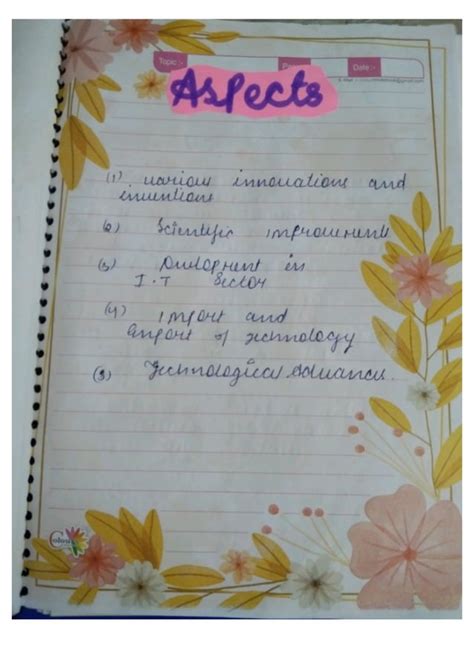 Topic :-
Date :-
Aspects
(1) various innovations and
inventions
(2) Scientific improvements
(3) Development in
I.T Sector
(4) import and
Export of technology
(5) Technological Advances.
Colour